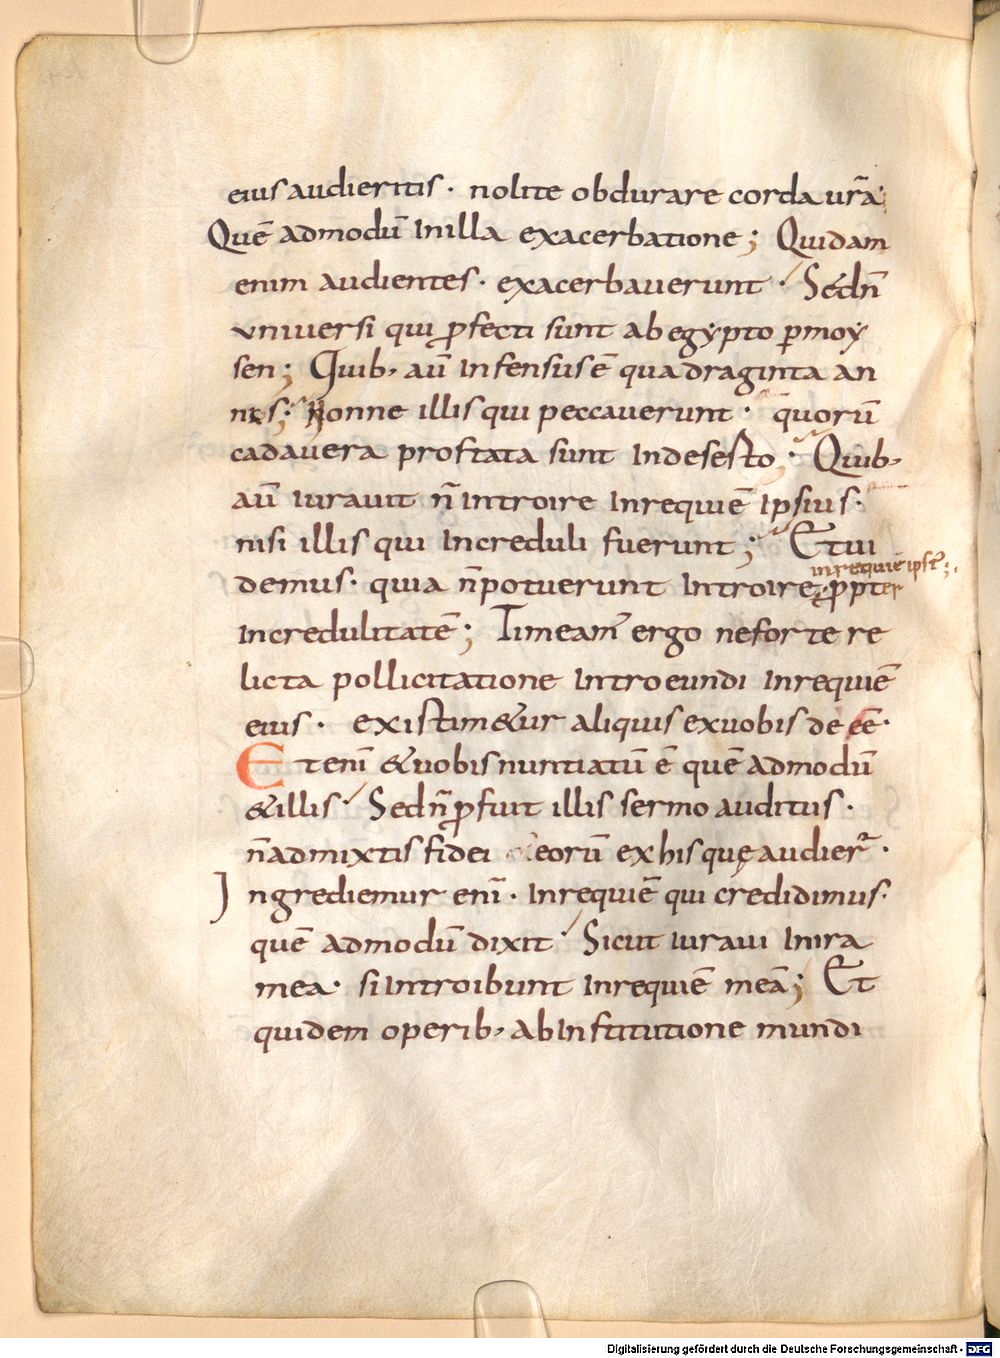 eius audieritis · nolite obdurare corda ur̃a;
Quē admodū In illa exacerbatione ; Quidam
enim audientes · exacerbauerunt · Sed ñ
vniuersi qui ꝓfecti sunt ab egypto ꝑ moy
sen ; Quib, aū Infensus ē quadraginta an
nis ; Nonne illis qui peccauerunt · quorū
cadauera prostata sunt In deserto · Quib,
aū iurauit ñ Introire In requiē Ipsius ·
nisi illis qui Increduli fuerunt ; Et ui
in requiē ipsi ;
demus · quia ñ potuerunt Introire · ꝓpter
Incredulitatē ; Timeam̄ ergo ne forte re
licta pollicitatione Introeundi In requiē
eius · existimetur aliquis ex uobis deeē ·
Et eni̅ & uobis nuntiatū ē quē admodū
& illis · Sed ñ ꝓfuit illis sermo auditus ·
ñ admixtis fidei eorū ex his quę audier̄ ·
Ingrediemur eni̅ · In requiē qui credidimus ·
quē admodū dixit · Sicut iuraui In ira
mea · si Introibunt In requiē meā ; Et
quidem operib, ab Institutione mundi
Digitalisierung gefördert durch die Deutsche Forschungsgemeinschaft - DFG